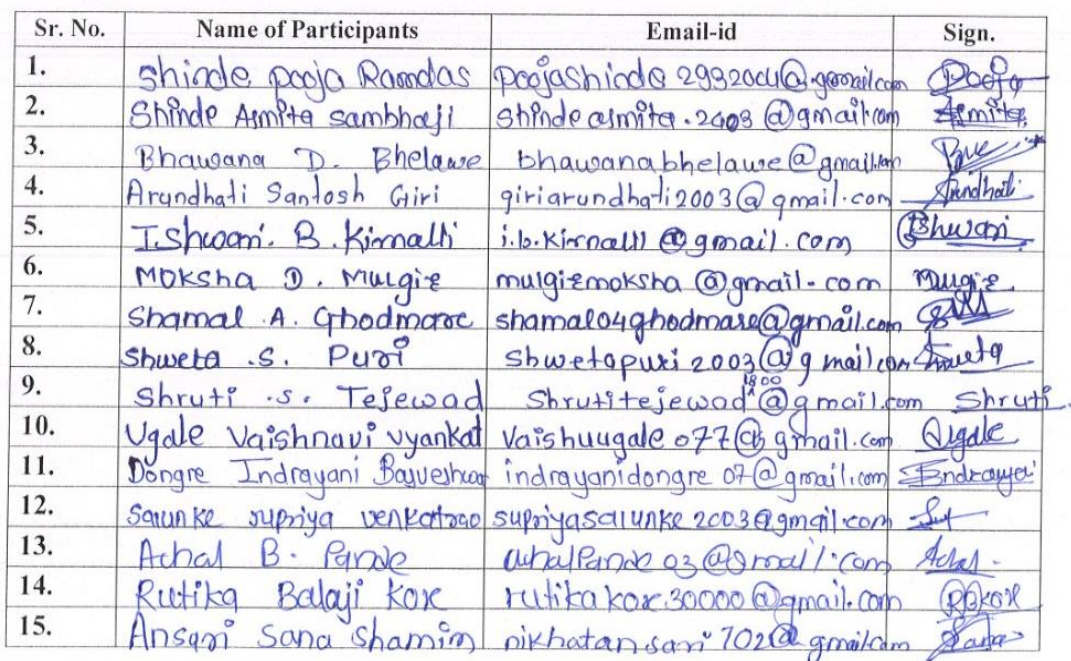 Sr. No. Name of Participants Email-id Sign.
1. Shinde pooja Ramdas poojashinde2932004@gmail.com Pooja
2. Shinde Asmita sambhaji shindeasmita.2403@gmail.com Asmita
3. Bhawana D. Bhelawe bhawanabhelawe@gmail.com
4. Arundhati Santosh Giri giriarundhati2003@gmail.com Arundhati
5. Ishwari. B. Kinnalli i.b.kinnalli@gmail.com Ishwari
6. Moksha D. Mulgie mulgiemoksha@gmail.com Mugie
7. Shamal .A. Ghodmare shamal04ghodmare@gmail.com
8. Shweta .S. Puri Shwetapuri2003@gmail.com Shweta
9. Shruti .S. Tejewad Shrutitejewad1800@gmail.com Shruti.
10. Ugale Vaishnavi vyankat Vaishuugale077@gmail.com Ugale
11. Dongre Indrayani indrayanidongre07@gmail.com Indrayani
12. Salunke supriya venkatrao supriyasalunke2003@gmail.com
13. Achal B. Pande achalPande03@gmail.com Achal.
14. Rutika Balaji Kore rutikakore30000@gmail.com RBKore
15. Ansari Sana Shamim nikhatansari702@gmail.com Sana